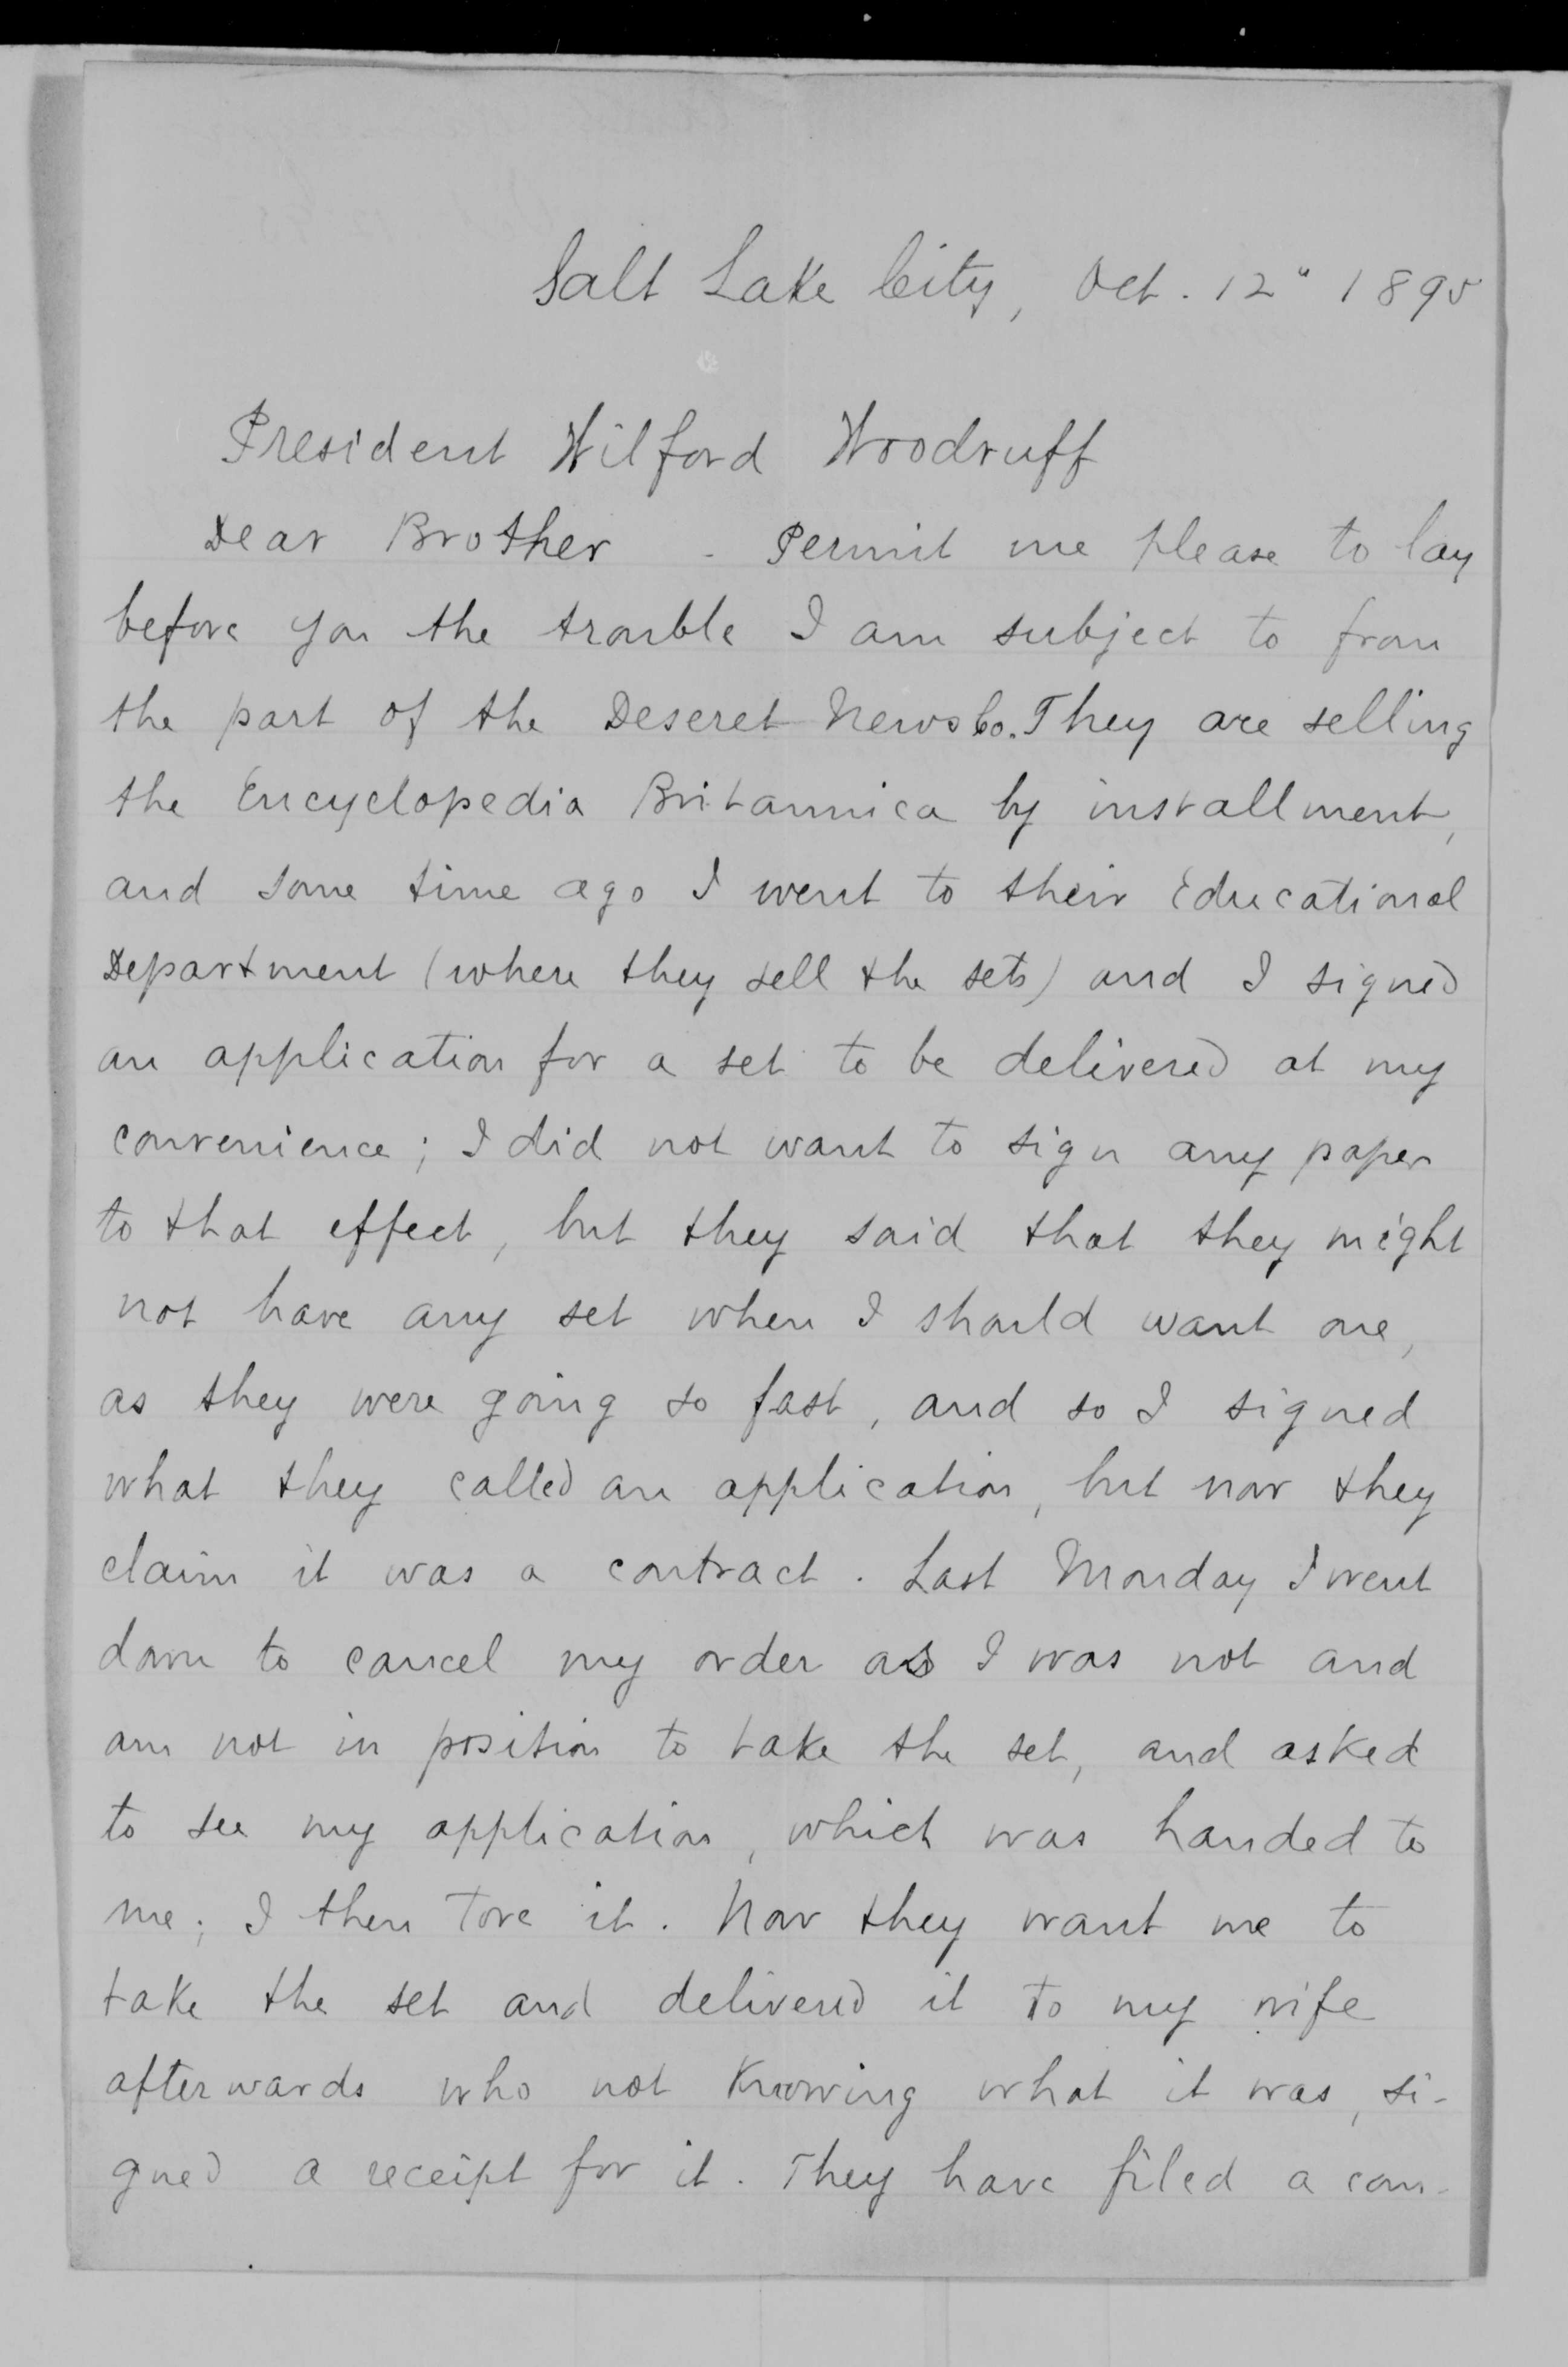 Salt Lake City, Oct. 12" 1895
President Wilford Woodruff
Dear Brother - Permit me please to lay
before you the trouble I am subject to from
the part of the Deseret News Co. They are selling
the Encyclopedia Britannica by installment,
and some time ago I went to their Educational
Department (where they sell the sets) and I signed
an application for a set to be delivered at my
convenience; I did not want to sign any paper
to that effect, but they said that they might
not have any set when I should want one,
as they were going so fast, and so I signed
what they called an application, but now they
claim it was a contract. Last Monday I went
down to cancel my order as I was not and
am not in position to take the set, and asked
to see my application, which was handed to
me; I then tore it. Now they want me to
take the set and delivered it to my wife
afterwards who not knowing what it was, si-
gned a receipt for it. They have filed a com-